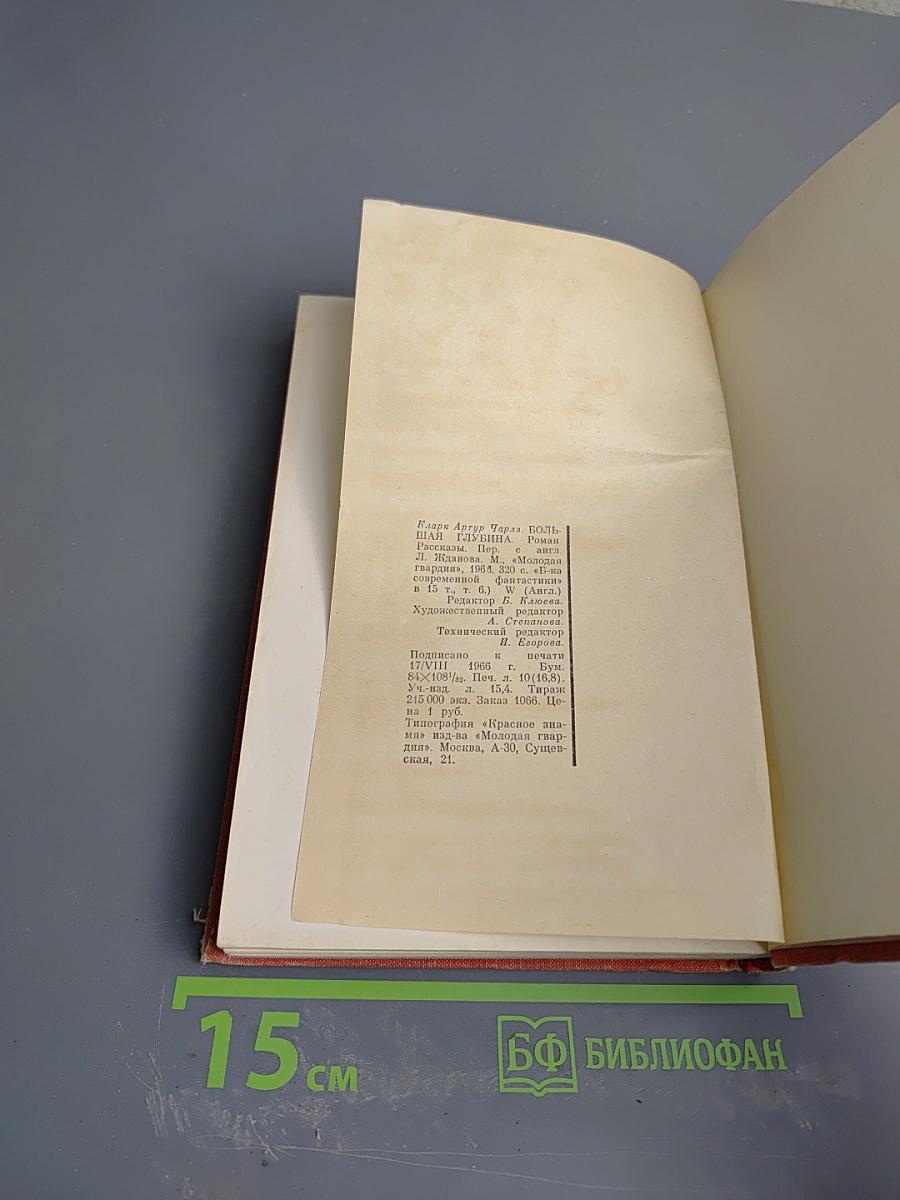 Кларк Артур Чарлз. БОЛЬ-
ШАЯ ГЛУБИНА. Роман
Рассказы. Пер. с англ.
Л. Жданова. М., «Молодая
гвардия», 1966. 320 с. «Б-ка
современной фантастики»
в 15 т., т. 6.) W (Англ.)
Редактор Б. Клюева.
Художественный редактор
А. Степанова.
Технический редактор
И. Егорова.
Подписано к печати
17/VIII 1966 г. Бум.
84×108¹/₃₂. Печ. л. 10(16,8).
Уч.-изд. л. 15,4. Тираж
215 000 экз. Заказ 1066. Це-
на 1 руб.
Типография «Красное зна-
мя» изд-ва «Молодая гвар-
дия». Москва, А-30, Сущев-
ская, 21.
15 см
БФ БИБЛИОФАН